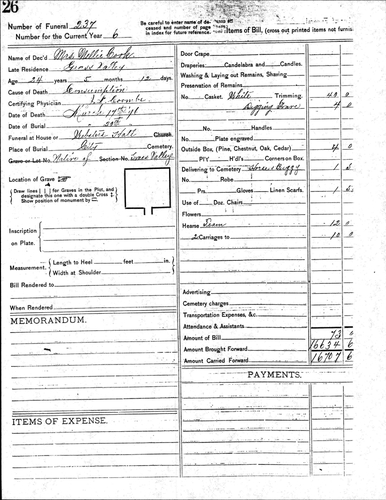 26
Number of Funeral 237
Number for the Current Year 6
Name of Dec'd Mrs Mollie Cook
Late Residence Grass Valley
Age 24 years 5 months 12 days
Cause of Death Consumption
Certifying Physician
Date of Death
Date of Burial 20th
Funeral at House or Webster Hall Church
Place of Burial City Cemetery.
Grave or Lot No. Native of Section No. Grass Valley
Location of Grave
Draw lines for Graves in the Plot, and
designate this one with a double Cross
Show position of monument by
Inscription
on Plate.
Measurement. Length to Heel feet in.
Width at Shoulder
Bill Rendered to
When Rendered
MEMORANDUM.
ITEMS OF EXPENSE.
Be careful to enter name of de-
ceased and number of page
in index for future reference.
Items of Bill, (cross out printed items not furnis
Door Crape
Draperies: Candelabra and Candles.
Washing & Laying out Remains, Shaving
Preservation of Remains
No Casket, White Trimming. 40 0
Digging Grave 4 0
No. Handles
Plate engraved
Outside Box, (Pine, Chestnut, Oak, Cedar) 4 0
Pl'y H'd's Corners on Box.
Delivering to Cemetery Horse & Buggy 1 5
No. Robe
Prs. Gloves Linen Scarfs. 1 5
Use of Doz. Chairs
Flowers
Hearse Team 12 0
2 Carriages to 10 0
Advertising
Cemetery charges
Transportation Expenses, &c.
Attendance & Assistants
Amount of Bill 73 0
Amount Brought Forward 16634 6
Amount Carried Forward 16707 6
PAYMENTS.